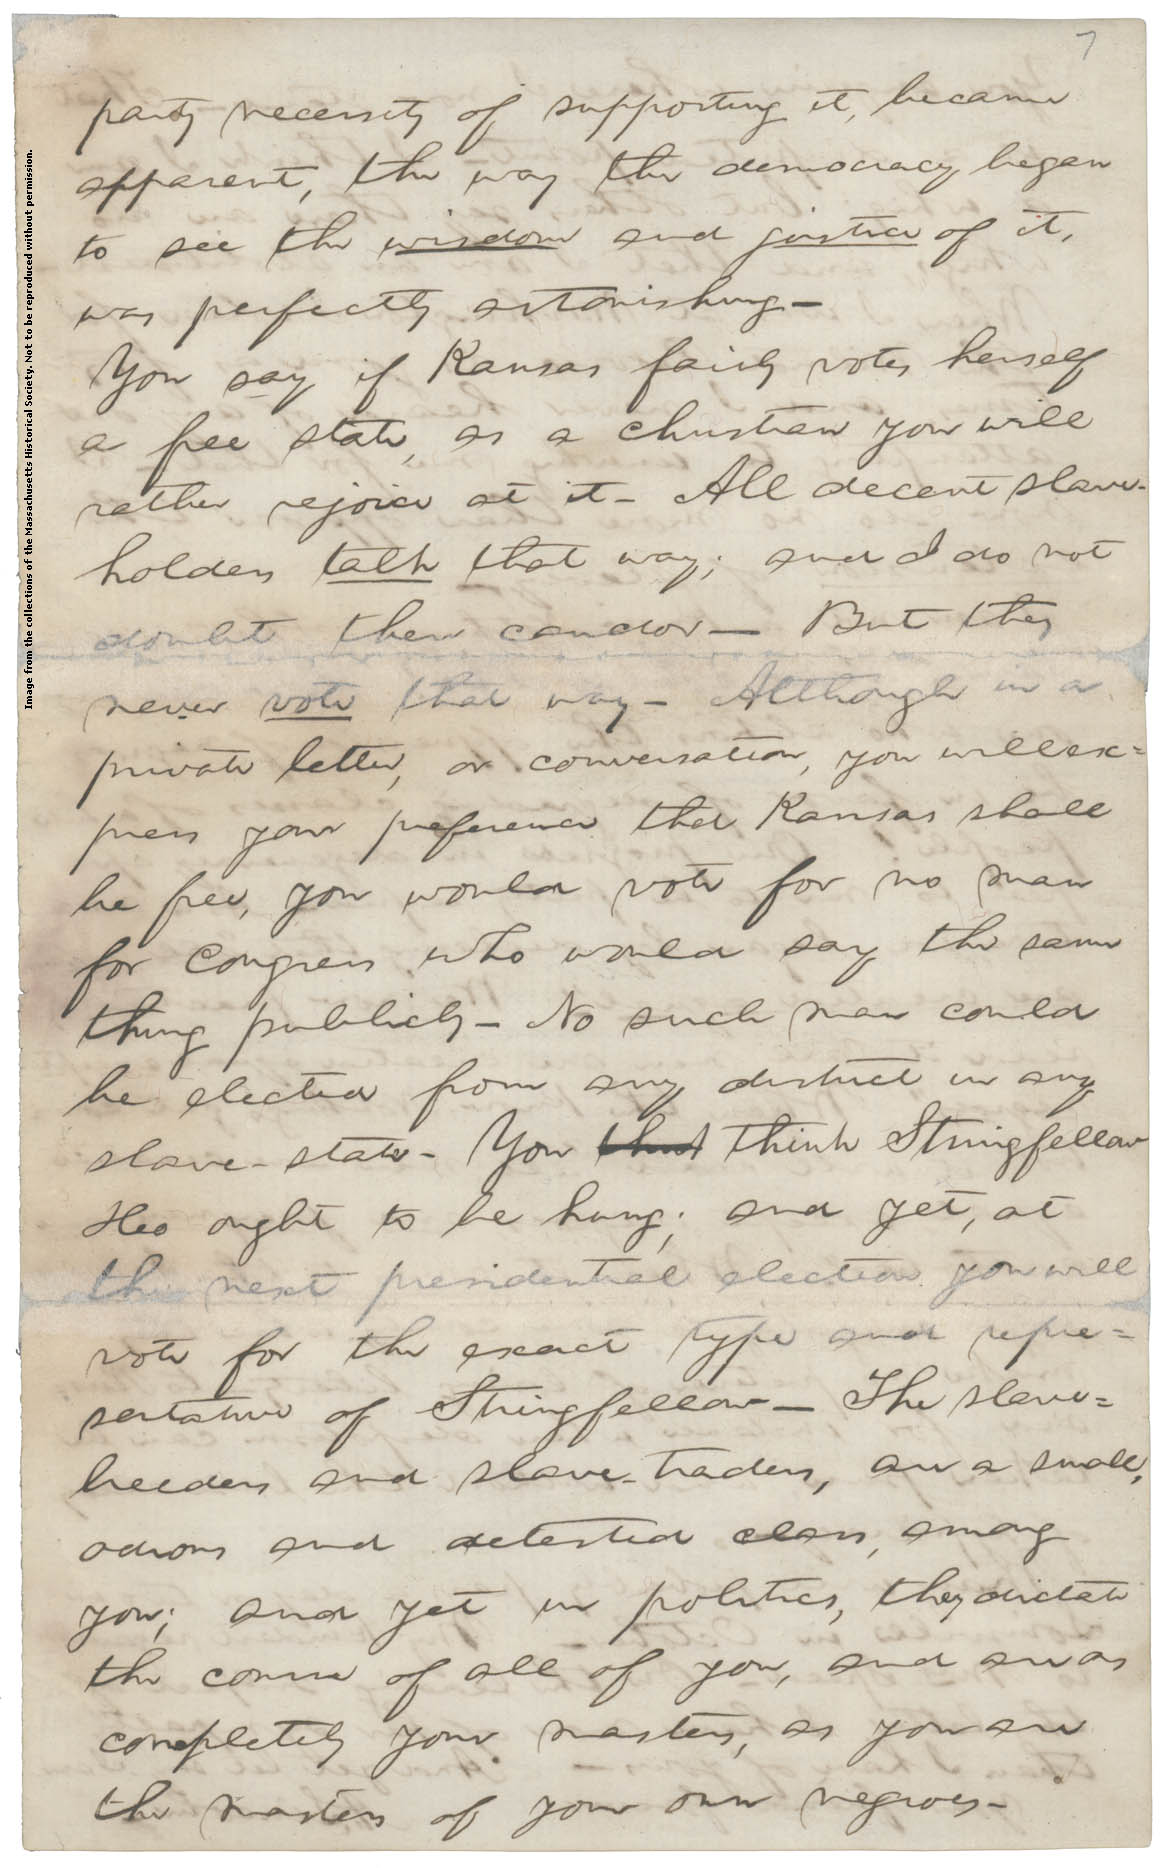 7
party necessity of supporting it, became
apparent, the way the democracy began
to see the wisdom and justice of it,
was perfectly astonishing—
You say if Kansas fairly votes herself
a free state, as a christian you will
rather rejoice at it— All decent slave-
holders talk that way; and I do not
doubt their candor— But they
never vote that way— Although in a
private letter, or conversation, you will ex=
press your preference that Kansas shall
be free, you would vote for no man
for Congress who would say the same
thing publicly— No such man could
be elected from any district in any
slave-state— You that think Stringfellow
&c ought to be hung; and yet, at
the next presidential election you will
vote for the exact type and repre=
sentative of Stringfellow— The slave=
breeders and slave-traders, are a small,
odious and detested class, among
you; and yet in politics, they dictate
the course of all of you, and are as
completely your masters, as you are
the masters of your own negroes—
Image from the collections of the Massachusetts Historical Society. Not to be reproduced without permission.